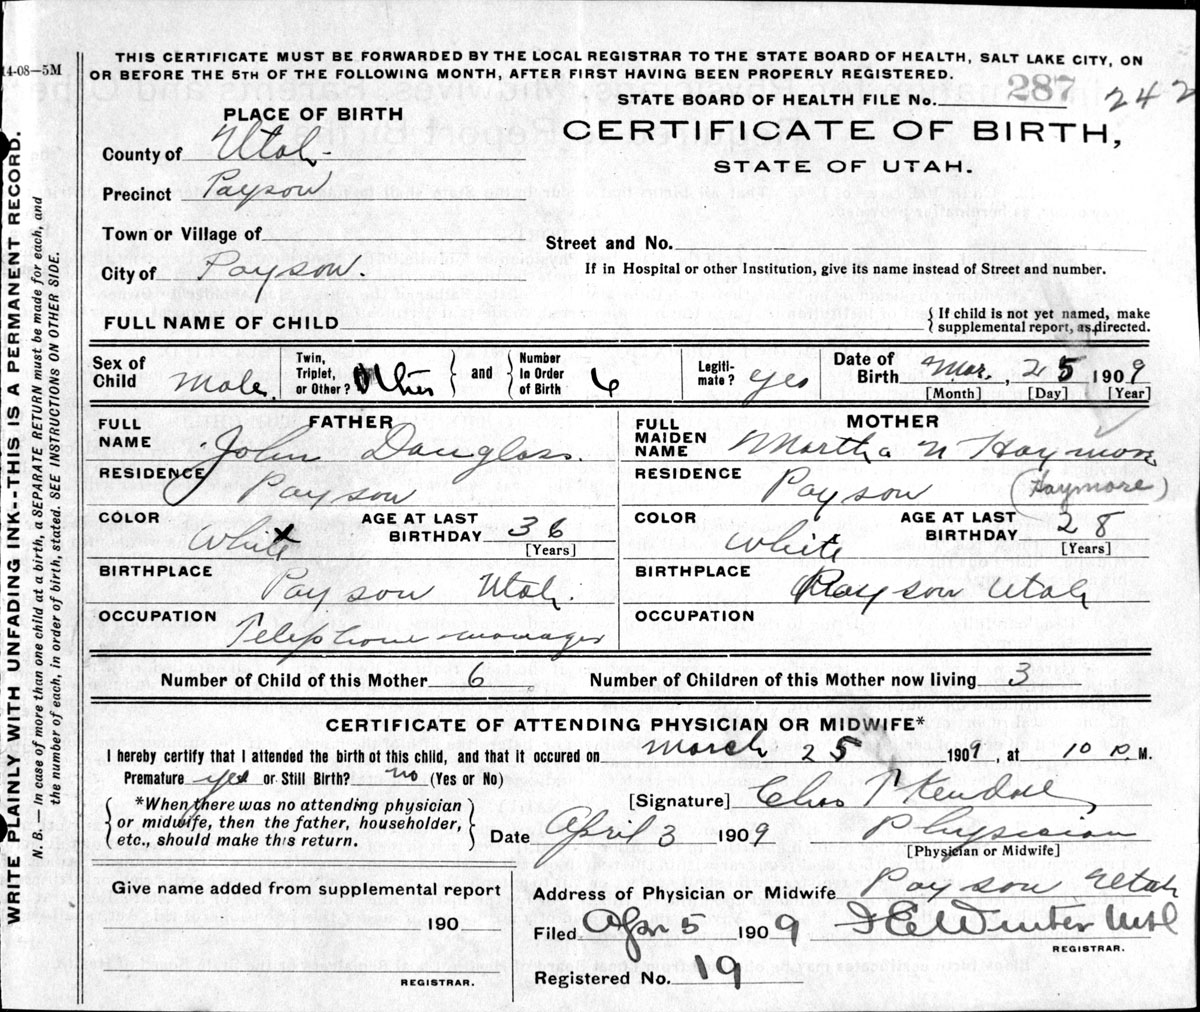 THIS CERTIFICATE MUST BE FORWARDED BY THE LOCAL REGISTRAR TO THE STATE BOARD OF HEALTH, SALT LAKE CITY, ON
OR BEFORE THE 5TH OF THE FOLLOWING MONTH, AFTER FIRST HAVING BEEN PROPERLY REGISTERED.
14-08—5M
STATE BOARD OF HEALTH FILE No. 287 242
PLACE OF BIRTH
CERTIFICATE OF BIRTH,
STATE OF UTAH.
County of Utah
Precinct Payson
Town or Village of
Street and No.
City of Payson.
If in Hospital or other Institution, give its name instead of Street and number.
FULL NAME OF CHILD
If child is not yet named, make
supplemental report, as directed.
Sex of Child Male
Twin, Triplet, or Other? and Number In Order of Birth 6
Legiti-mate? yes
Date of Birth Mar. 25 1909
[Month] [Day] [Year]
FATHER
FULL NAME John Douglass.
RESIDENCE Payson
COLOR White AGE AT LAST BIRTHDAY 36
[Years]
BIRTHPLACE Payson Utah.
OCCUPATION Telephone manager
MOTHER
FULL MAIDEN NAME Martha N Haymore
RESIDENCE Payson (Haymore)
COLOR White AGE AT LAST BIRTHDAY 28
[Years]
BIRTHPLACE Payson Utah
OCCUPATION
Number of Child of this Mother 6 Number of Children of this Mother now living 3
CERTIFICATE OF ATTENDING PHYSICIAN OR MIDWIFE*
I hereby certify that I attended the birth of this child, and that it occured on March 25 1909, at 10 P.M.
Premature yes or Still Birth? no (Yes or No)
*When there was no attending physician
or midwife, then the father, householder,
etc., should make this return.
[Signature]
Date April 3 1909 Physician
[Physician or Midwife]
Give name added from supplemental report
190
REGISTRAR.
Address of Physician or Midwife Payson Utah
Filed Apr 5 1909 Winter
REGISTRAR.
Registered No. 19
WRITE PLAINLY WITH UNFADING INK--THIS IS A PERMANENT RECORD.
N. B. — In case of more than one child at a birth, a SEPARATE RETURN must be made for each, and
the number of each, in order of birth, stated. SEE INSTRUCTIONS ON OTHER SIDE.